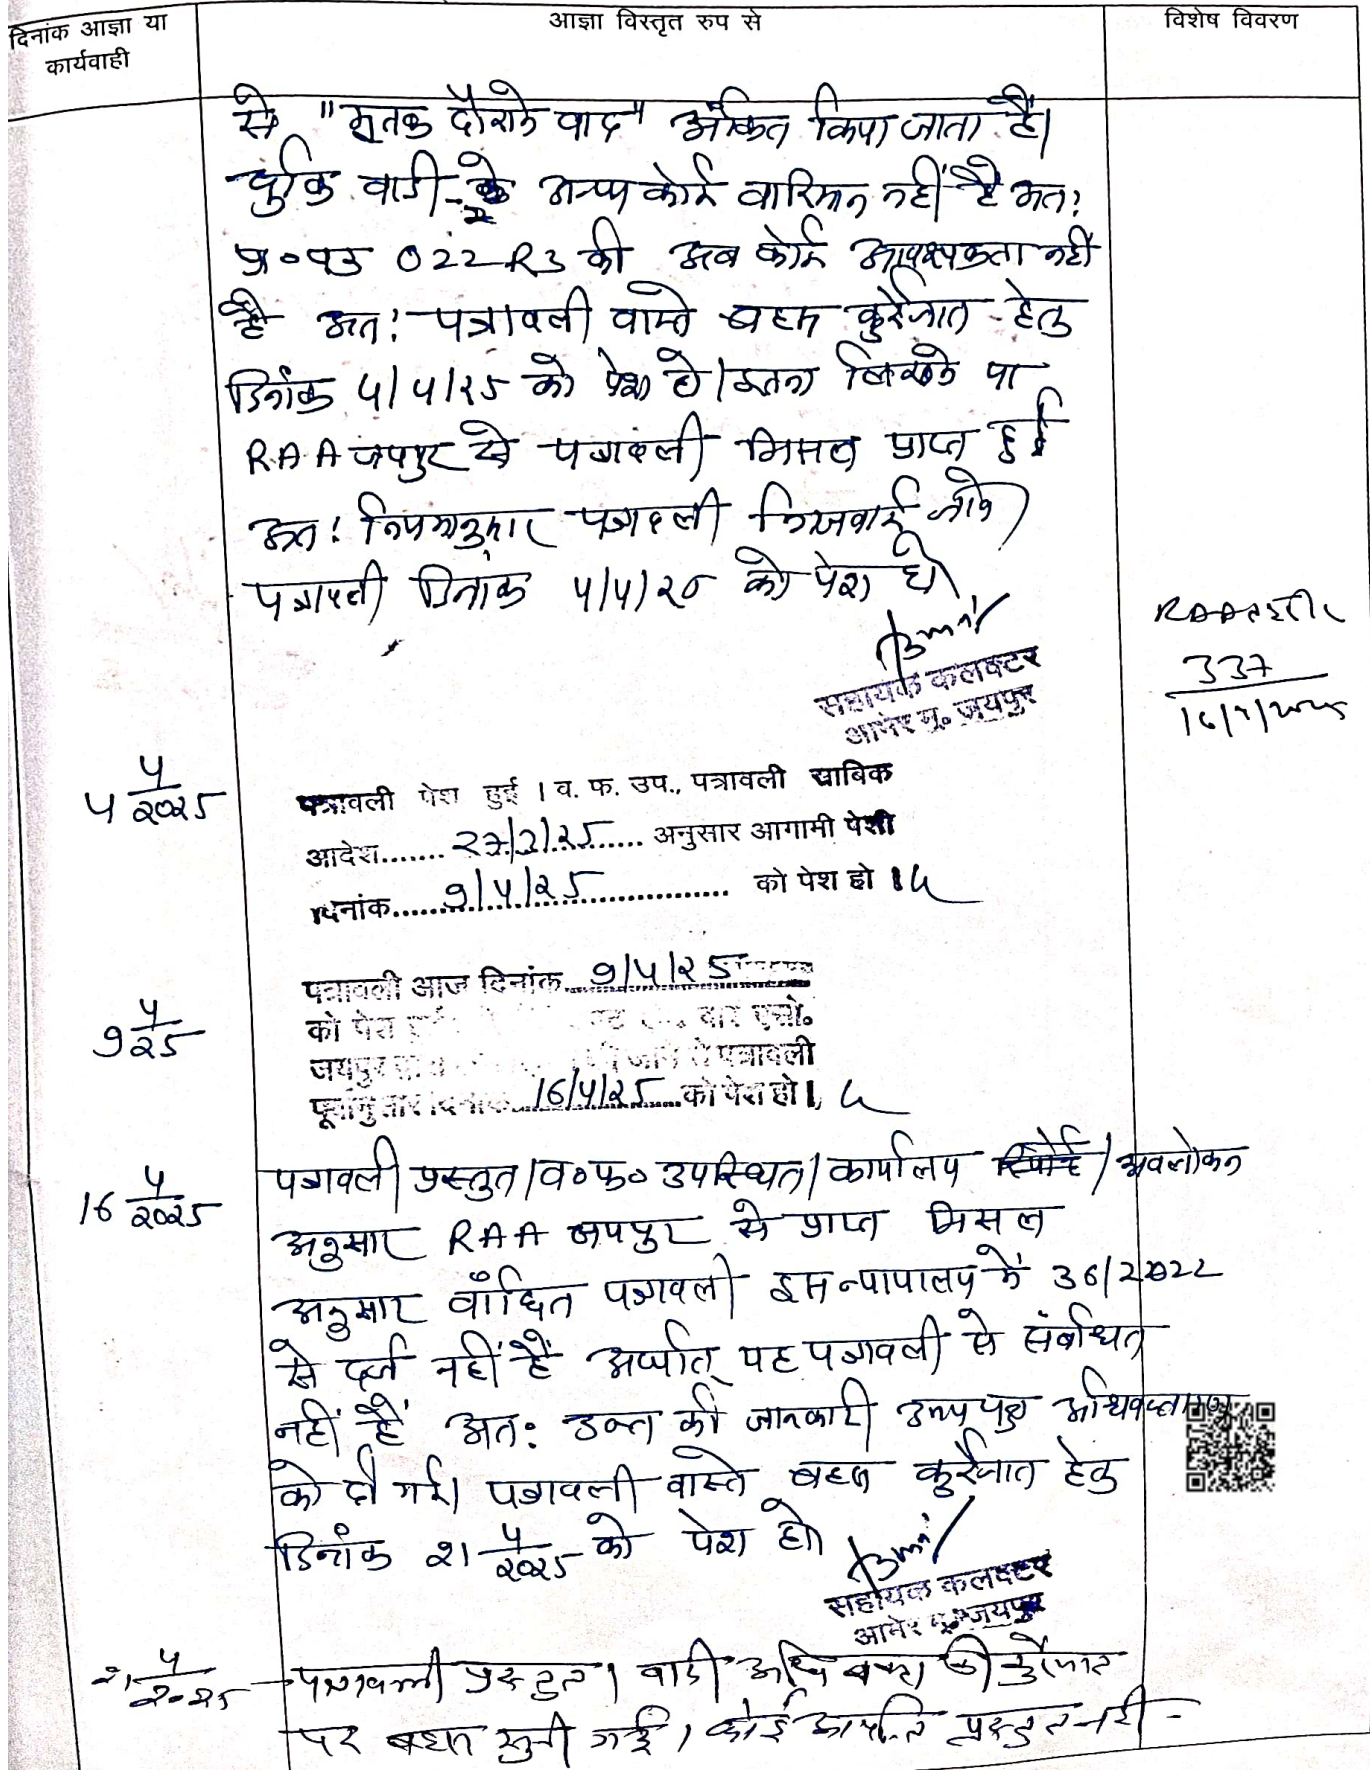 दिनांक आज्ञा या
कार्यवाही
आज्ञा विस्तृत रुप से
विशेष विवरण
से "मृतक दौराने वाद" अंकित किया जाता है।
चूंकि वादी-2 के अन्य कोई वारिसान नहीं है अतः
प्र०पत्र O22R3 की अब कोई आवश्यकता नहीं
है अतः पत्रावली वास्ते बहस कुर्रेजात हेतु
दिनांक 4/4/25 को पेश हो। इतना लिखने पर
RAA जयपुर से पत्रावली मिसल प्राप्त हुई
अतः नियमानुसार पत्रावली भिजवाई जावे
पत्रावली दिनांक 4/4/25 को पेश हो
सहायक कलक्टर
आमेर मु. जयपुर
RAA
337
16/4/2025
4 4/2025
पत्रावली पेश हुई । व. फ. उप., पत्रावली साबिक
आदेश....... 27/3/25 ...... अनुसार आगामी पेशी
दिनांक....... 9/4/25 ................ को पेश हो ।
9 4/25
पत्रावली आज दिनांक 9/4/25
को पेश बार एसो.
जयपुर जाने से पत्रावली
पूर्वानुसार दिनांक 16/4/25 को पेश हो ।
16 4/2025
पत्रावली प्रस्तुत। व०फ० उपस्थित। कार्यालय रिपोर्ट / अवलोकन
अनुसार RAA जयपुर से प्राप्त मिसल
अनुसार वांछित पत्रावली इस न्यायालय में 36/2022
से दर्ज नहीं है अर्थात् यह पत्रावली से संबंधित
नहीं है अतः उक्त की जानकारी उभयपक्ष अधिवक्तागण
को दी गई। पत्रावली वास्ते बहस कुर्रेजात हेतु
दिनांक 21 4/2025 को पेश हो
सहायक कलक्टर
आमेर मु. जयपुर
21 4/2025
पत्रावली प्रस्तुत। वादी अधिवक्ता की कुर्रेजात
पर बहस सुनी गई। कोई आपत्ति प्रस्तुत नहीं -